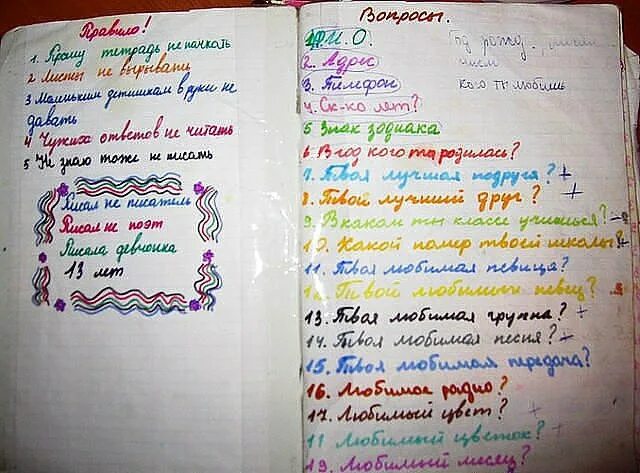 Правило!
1. Прошу тетрадь не пачкать
2 Листы не вырывать
3 Маленьким детишкам в руки не
давать
4 Чужих ответов не читать
5 Не знаю тоже не писать
Писал не писатель
Писал не поэт
Писала девчонка
13 лет
Вопросы.
1 Ф.И.О.
2. Адрес
3. Тилефон
4. Ск-ко лет?
5 Знак зодиака
6 В год кого ты родилась?
7. Твоя лучшая подруга? +
8. Твой лучший друг? +
9. В каком ты классе учишься?
10. Какой номер твоей школы?
11. Твоя любимая певица?
12. Твой любимый певец?
13. Твоя любимая группа? +
14. Твоя любимая песня? +
15. Твоя любимая передача?
16. Любимое радио?
17. Любимый цвет? +
11 Любимый цветок? +
19. Любимый месяц?
Год рожд.
кого ты любишь